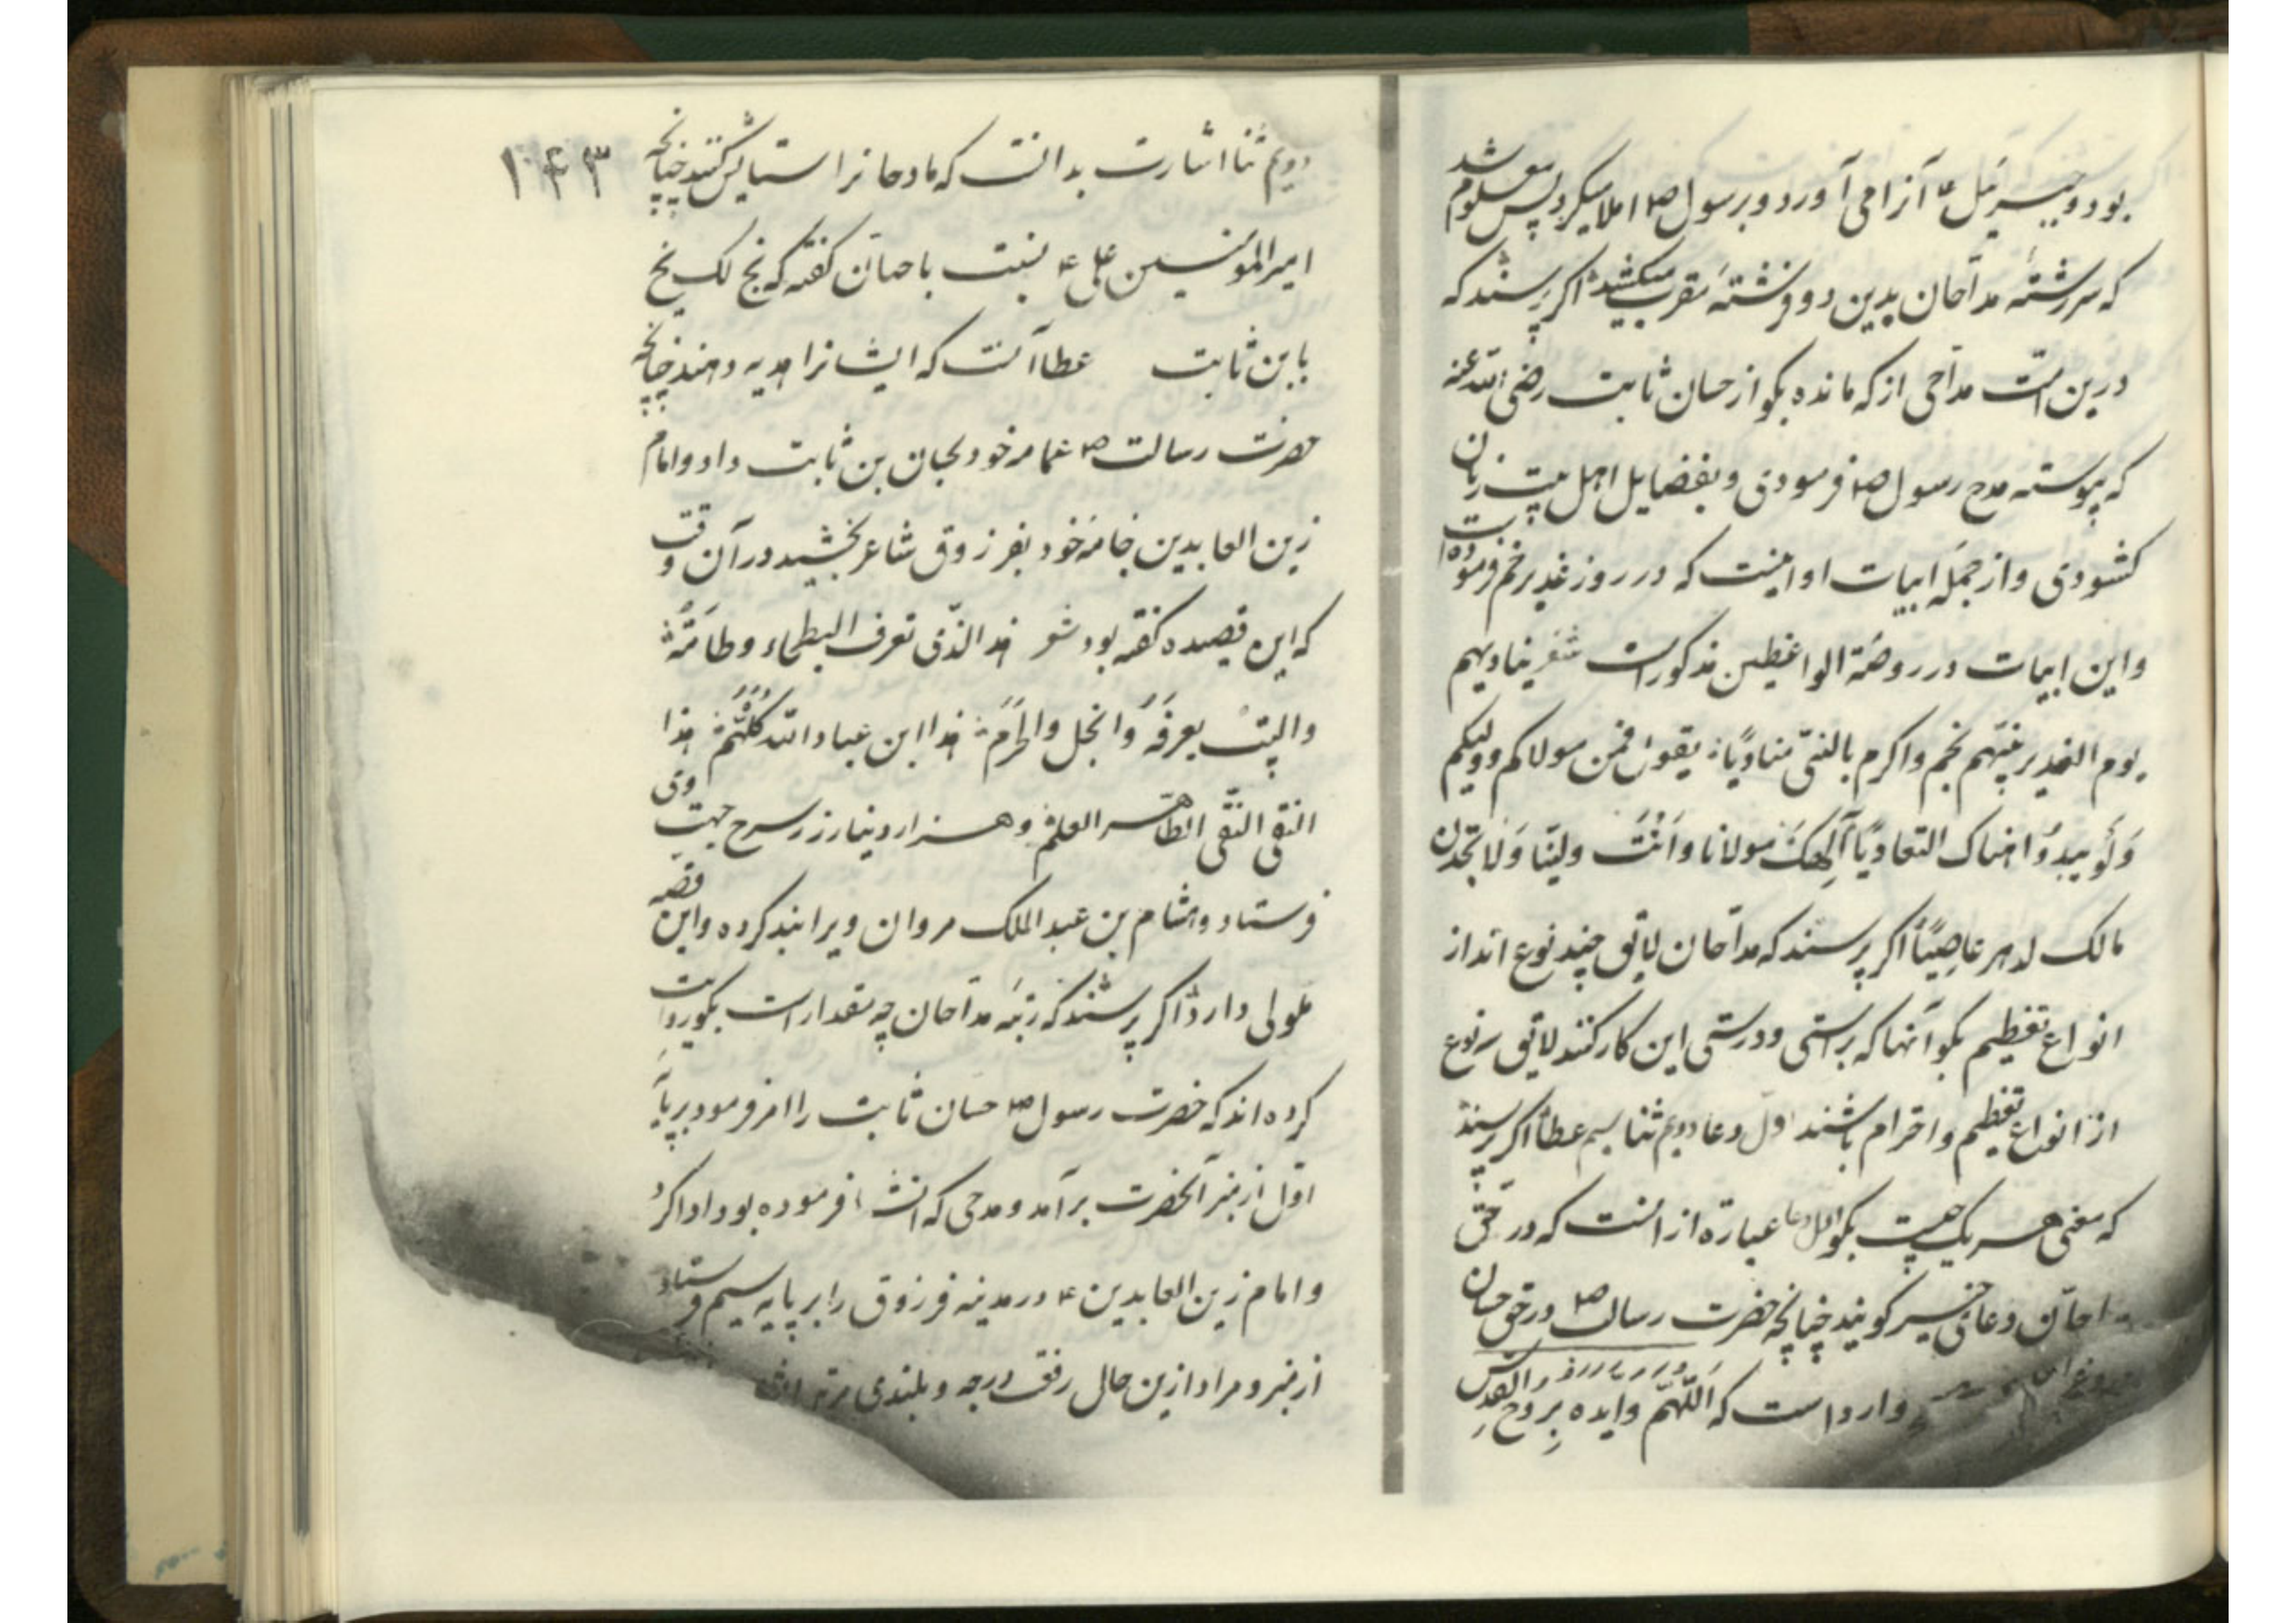 بود و جبرئیل ع آنرا می آورد و برسول ص املا میکرد پس معلوم شد
که سررشته مداحان بدین دو فرشته مقرب میکشد اگر پرسند که
درین امت مداحی از که مانده بگو از حسان ثابت رضی الله عنه
که پیوسته مدح رسول ص فرمودی و بفضایل اهل بیت زبان
کشودی و از جمله ابیات او اینست که در روز غدیر خم فرموده است
و این ابیات در روضة الواعظین مذکور است شعر ینادیهم
یوم الغدیر نبیهم بخم واکرم بالنبی منادیا یقول فمن مولاکم وولیکم
وَلَو یبدُوا هناک التعادیا آلهک مولانا وَاَنْتَ ولینا وَلا تجدن
مالک لدهر عاصِیًا اگر پرسند که مداحان لایق چند نوع اند از
انواع تعظیم بگو آنها که براستی و درستی این کار کنند لایق سه نوع
از انواع تعظیم و احترام باشند اول دعا دویم ثنا سیم عطا اگر پرسند
که معنی هر یک چیست بگو اول دعا عبارة از انست که در حق
مداحان دعای خیر کویند چنانچه حضرت رسالت ص در حق حسان
وارد است که اَللّهُمّ وایده بِروح القدس
۱۴۳
دویم ثنا اشارت بدانست که مادحانرا ستایش کنند چنانچه
امیر المؤمنین علی ع نسبت باحسان کفته که بخ لک بخ
یابن ثابت عطا آنست که ایشانرا هدیه دهند چنانچه
حضرت رسالت ص عمامه خود بحسان بن ثابت داد و امام
زین العابدین جامه خود بفرزوق شاعر بخشید در آن وقت
که این قصیده کفته بود شعر هذا الذی تعرف البطحاء وطاءته
والبیت یعرفه وانحل والحرم هذا ابن عباد الله کلهم هذا
التقی النقی الطاهر العلم و هزار دینار زر سرخ جهت وی
فرستاد و هشام بن عبد الملک مروان ویرا بند کرده و این قصه
طولی دارد اگر پرسند که رتبه مداحان چه مقدار است بگو روایت
کرده اند که حضرت رسول ص حسان ثابت را امر فرمود بر پایه
اول از منبر آنحضرت برآمد و مدحی که انشا فرموده بود ادا کرد
و امام زین العابدین ع در مدینه فرزوق را بر پایه سیم فرستاد
از منبر و مراد ازین حال رفعت درجه و بلندی مرتبه